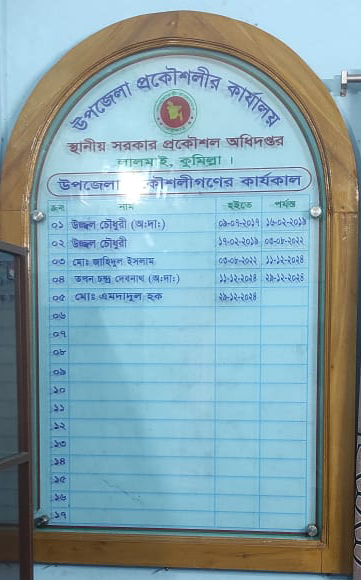 উপজেলা প্রকৌশলীর কার্যালয়
স্থানীয় সরকার প্রকৌশল অধিদপ্তর
লালমাই, কুমিল্লা ।
উপজেলা কৌশলীগণের কার্যকাল
ক্র:নং নাম হইতে পর্যন্ত
০১ উজ্জ্বল চৌধুরী (অ:দা:) ০৯-০৭-২০১৭ ১৬-০২-২০১৯
০২ উজ্জ্বল চৌধুরী ১৭-০২-২০১৯ ০৩-০৮-২০২২
০৩ মোঃ জাহিদুল ইসলাম ০৩-০৮-২০২২ ১১-১২-২০২৪
০৪ তপন চন্দ্র দেবনাথ (অ:দা:) ১১-১২-২০২৪ ২৯-১২-২০২৪
০৫ মোঃ এমদাদুল হক ২৯-১২-২০২৪
০৬
০৭
০৮
০৯
১০
১১
১২
১৩
১৪
১৫
১৬
১৭